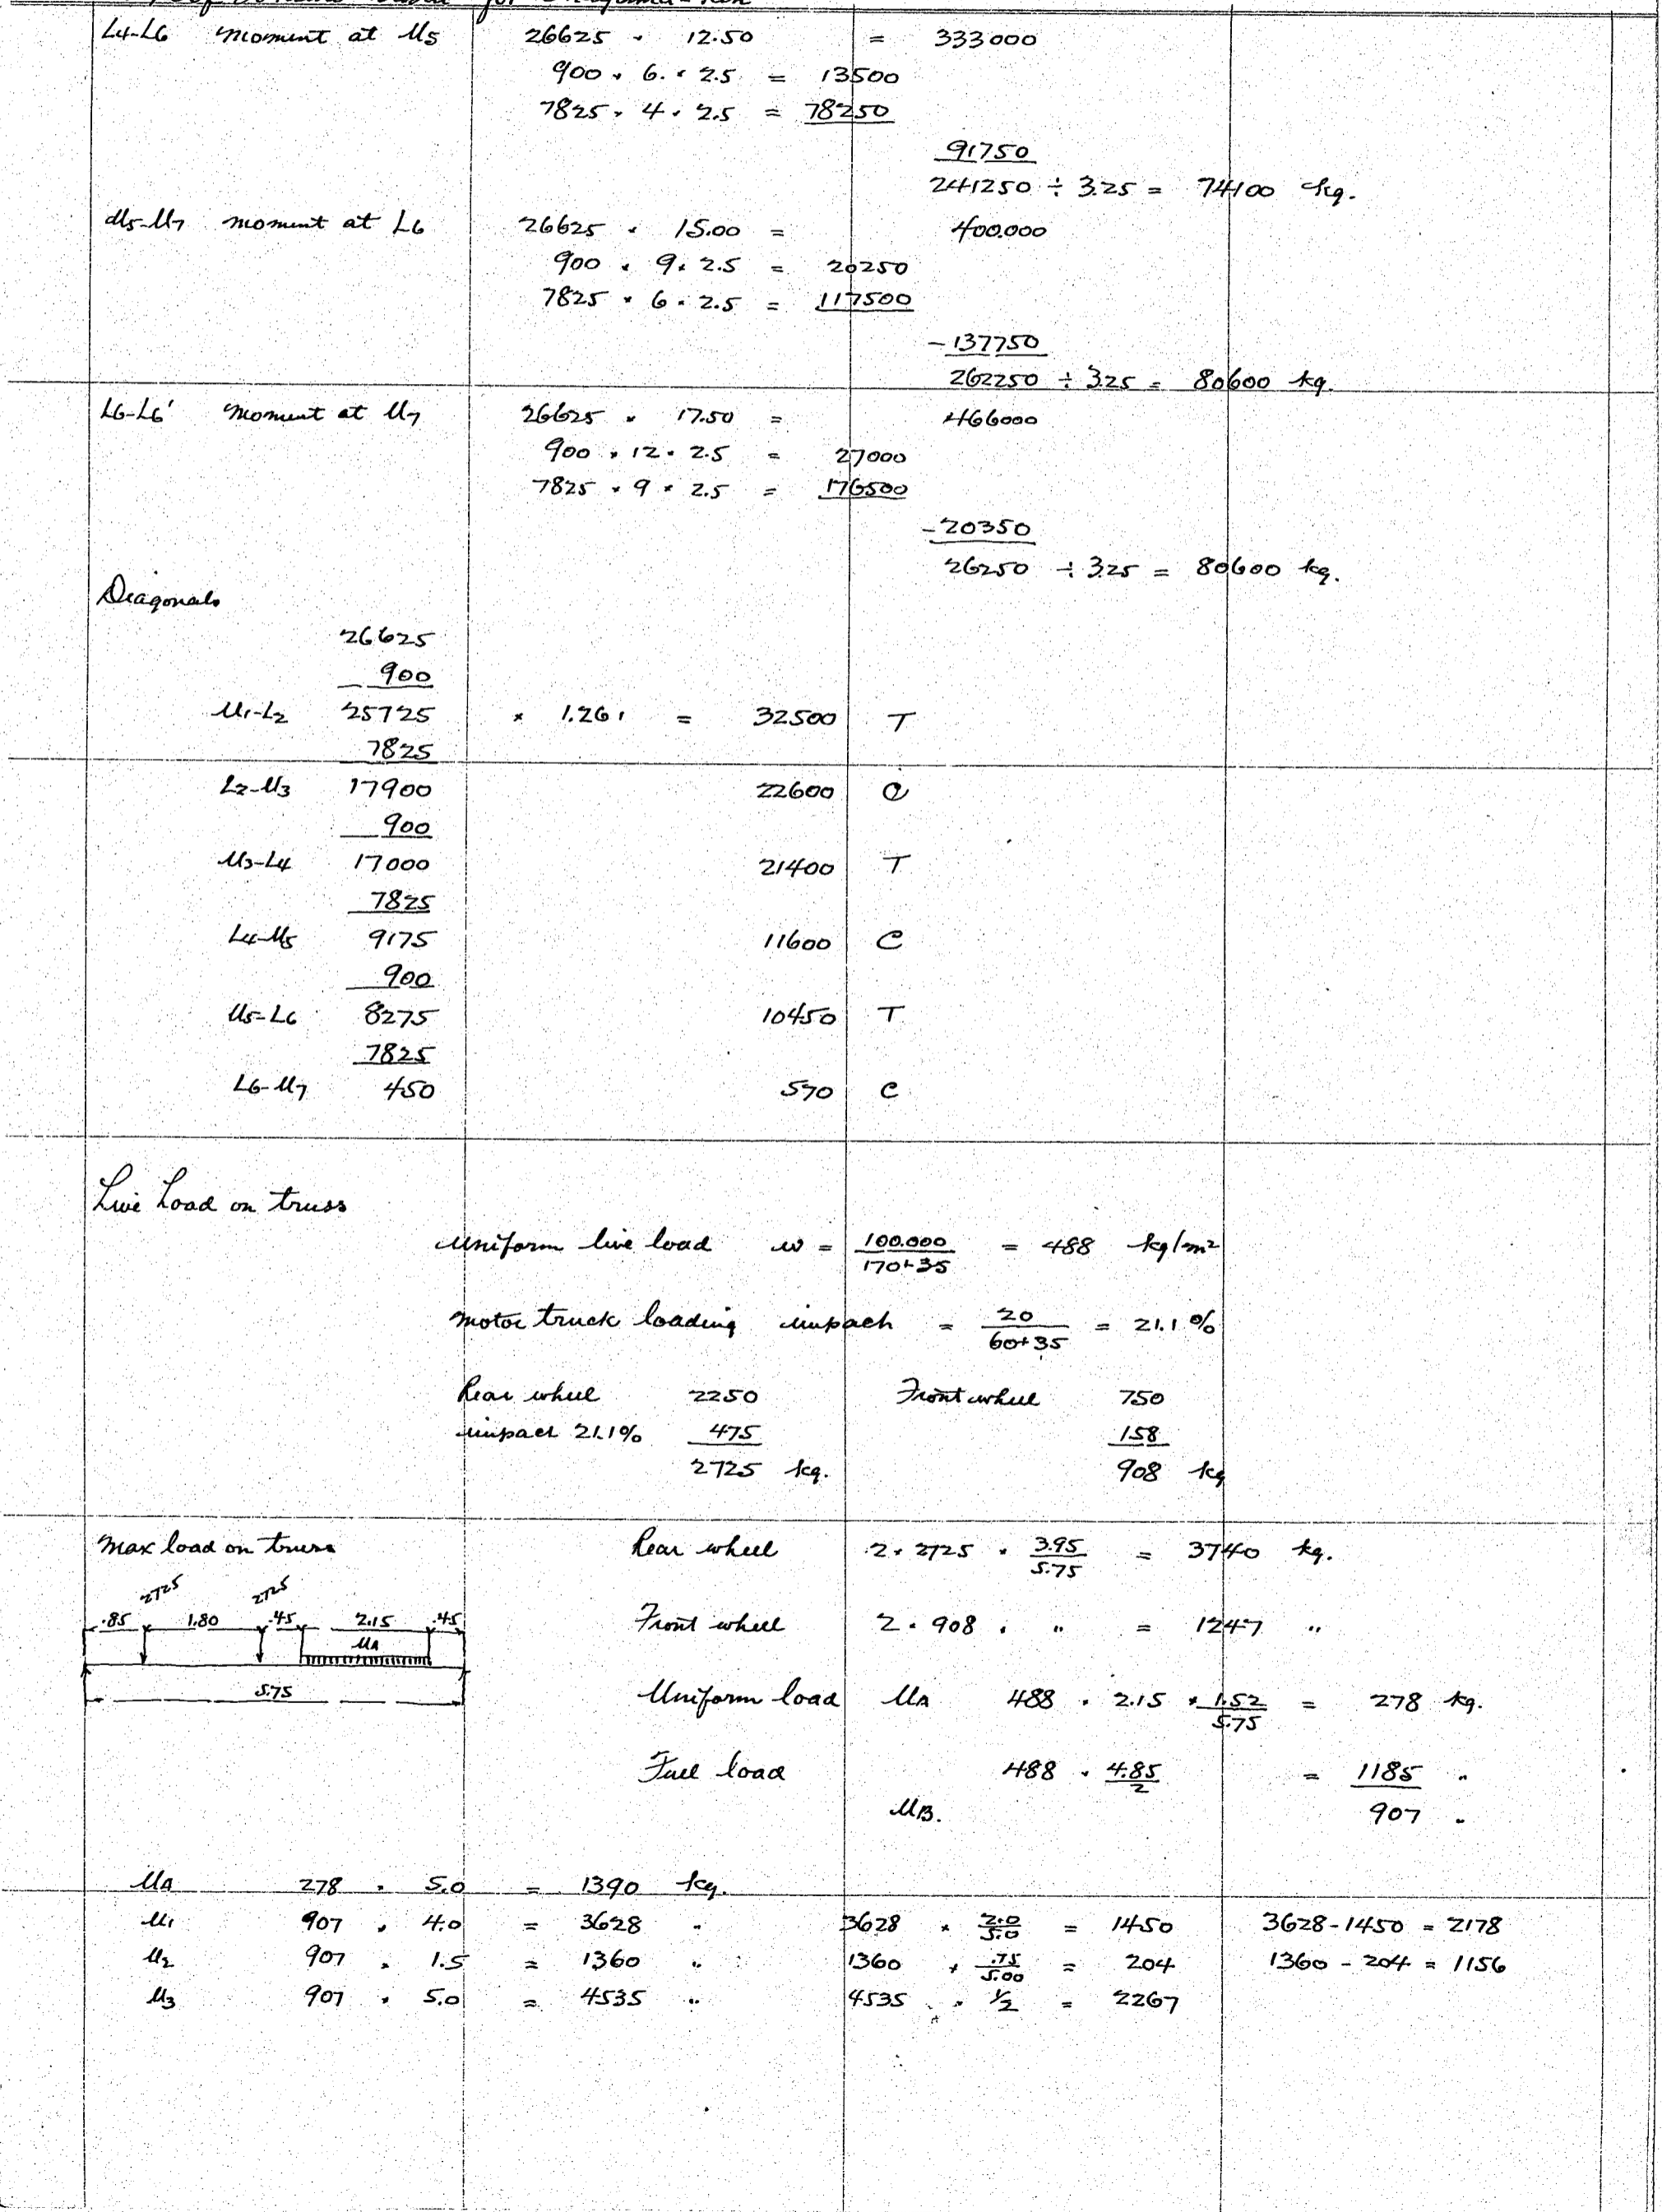 L4-L6 Moment at U5 26625 × 12.50 = 333000
900 × 6. × 2.5 = 13500
7825 × 4 × 2.5 = 78250
91750
241250 ÷ 3.25 = 74100 kg.
U5-U7 moment at L6 26625 × 15.00 = 400.000
900 × 9 × 2.5 = 20250
7825 × 6 × 2.5 = 117500
-137750
262250 ÷ 3.25 = 80600 kg.
L6-L6' Moment at U7 26625 × 17.50 = 466000
900 × 12 × 2.5 = 27000
7825 × 9 × 2.5 = 176500
-20350
26250 ÷ 3.25 = 80600 kg.
Diagonals
26625
900
U1-L2 25725 × 1.261 = 32500 T
7825
L2-U3 17900 22600 C
900
U3-L4 17000 21400 T
7825
L4-U5 9175 11600 C
900
U5-L6 8275 10450 T
7825
L6-U7 450 570 C
Live Load on truss
Uniform live load w = 100.000 / 170+35 = 488 kg/m²
Motor truck loading impach = 20 / 60+35 = 21.1 %
Rear wheel 2250 Front wheel 750
impact 21.1% 475 158
2725 kg. 908 kg
Max load on truss Rear wheel 2 × 2725 × 3.95 / 5.75 = 3740 kg.
2725 2725
.85 1.80 .45 2.15 .45 Front wheel 2 × 908 × " = 1247 "
UA
5.75 Uniform load UA 488 × 2.15 × 1.52 / 5.75 = 278 kg.
Full load 488 × 4.85 / 2 = 1185 "
UB. 907 "
UA 278 × 5.0 = 1390 kg.
U1 907 × 4.0 = 3628 " 3628 × 2.0 / 5.0 = 1450 3628-1450 = 2178
U2 907 × 1.5 = 1360 " 1360 × .75 / 5.00 = 204 1360 - 204 = 1156
U3 907 × 5.0 = 4535 " 4535 × 1/2 = 2267